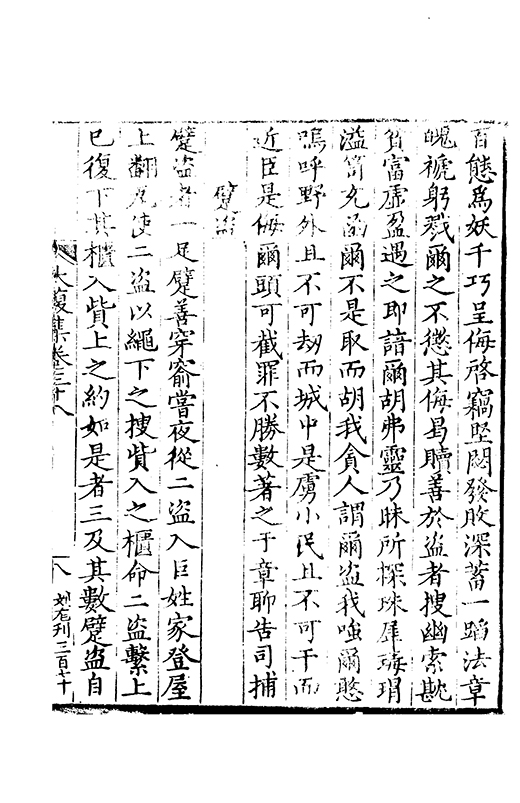 百態爲妖千巧呈侮啓竊堅閟發敗深蓄一蹈法章
魄褫躬戮爾之不懲其侮曷贖善於盜者搜幽索眈
貧富虛盈遇之即諳爾胡弗靈乃昧所探珠犀瑇瑁
溢笥充凾爾不是取而胡我貪人謂爾盜我嗤爾憨
嗚呼野外且不可刼而城中是虜小民且不可干而
近臣是侮爾頭可截罪不勝數著之于章聊告司捕
躄盜
躄盜者一足躄善穿窬嘗夜從二盜入巨姓家登屋
上翻瓦使二盜以繩下之搜貲入之櫃命二盜繫上
已復下其櫃入貲上之約如是者三及其數躄盜自
大復集卷三十八
八
刘左刊三百七十